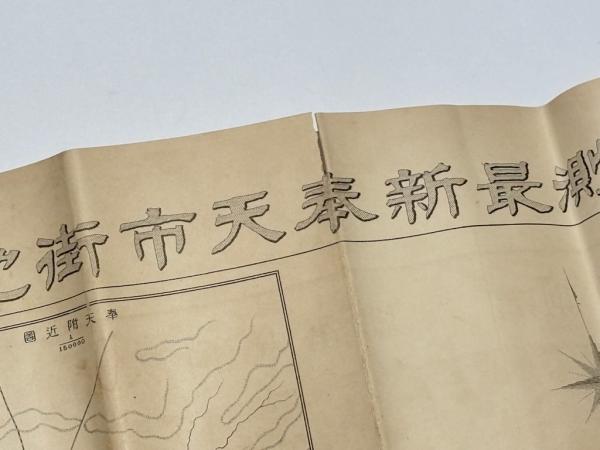 測最新奉天市街地
奉天附近圖
1/150000